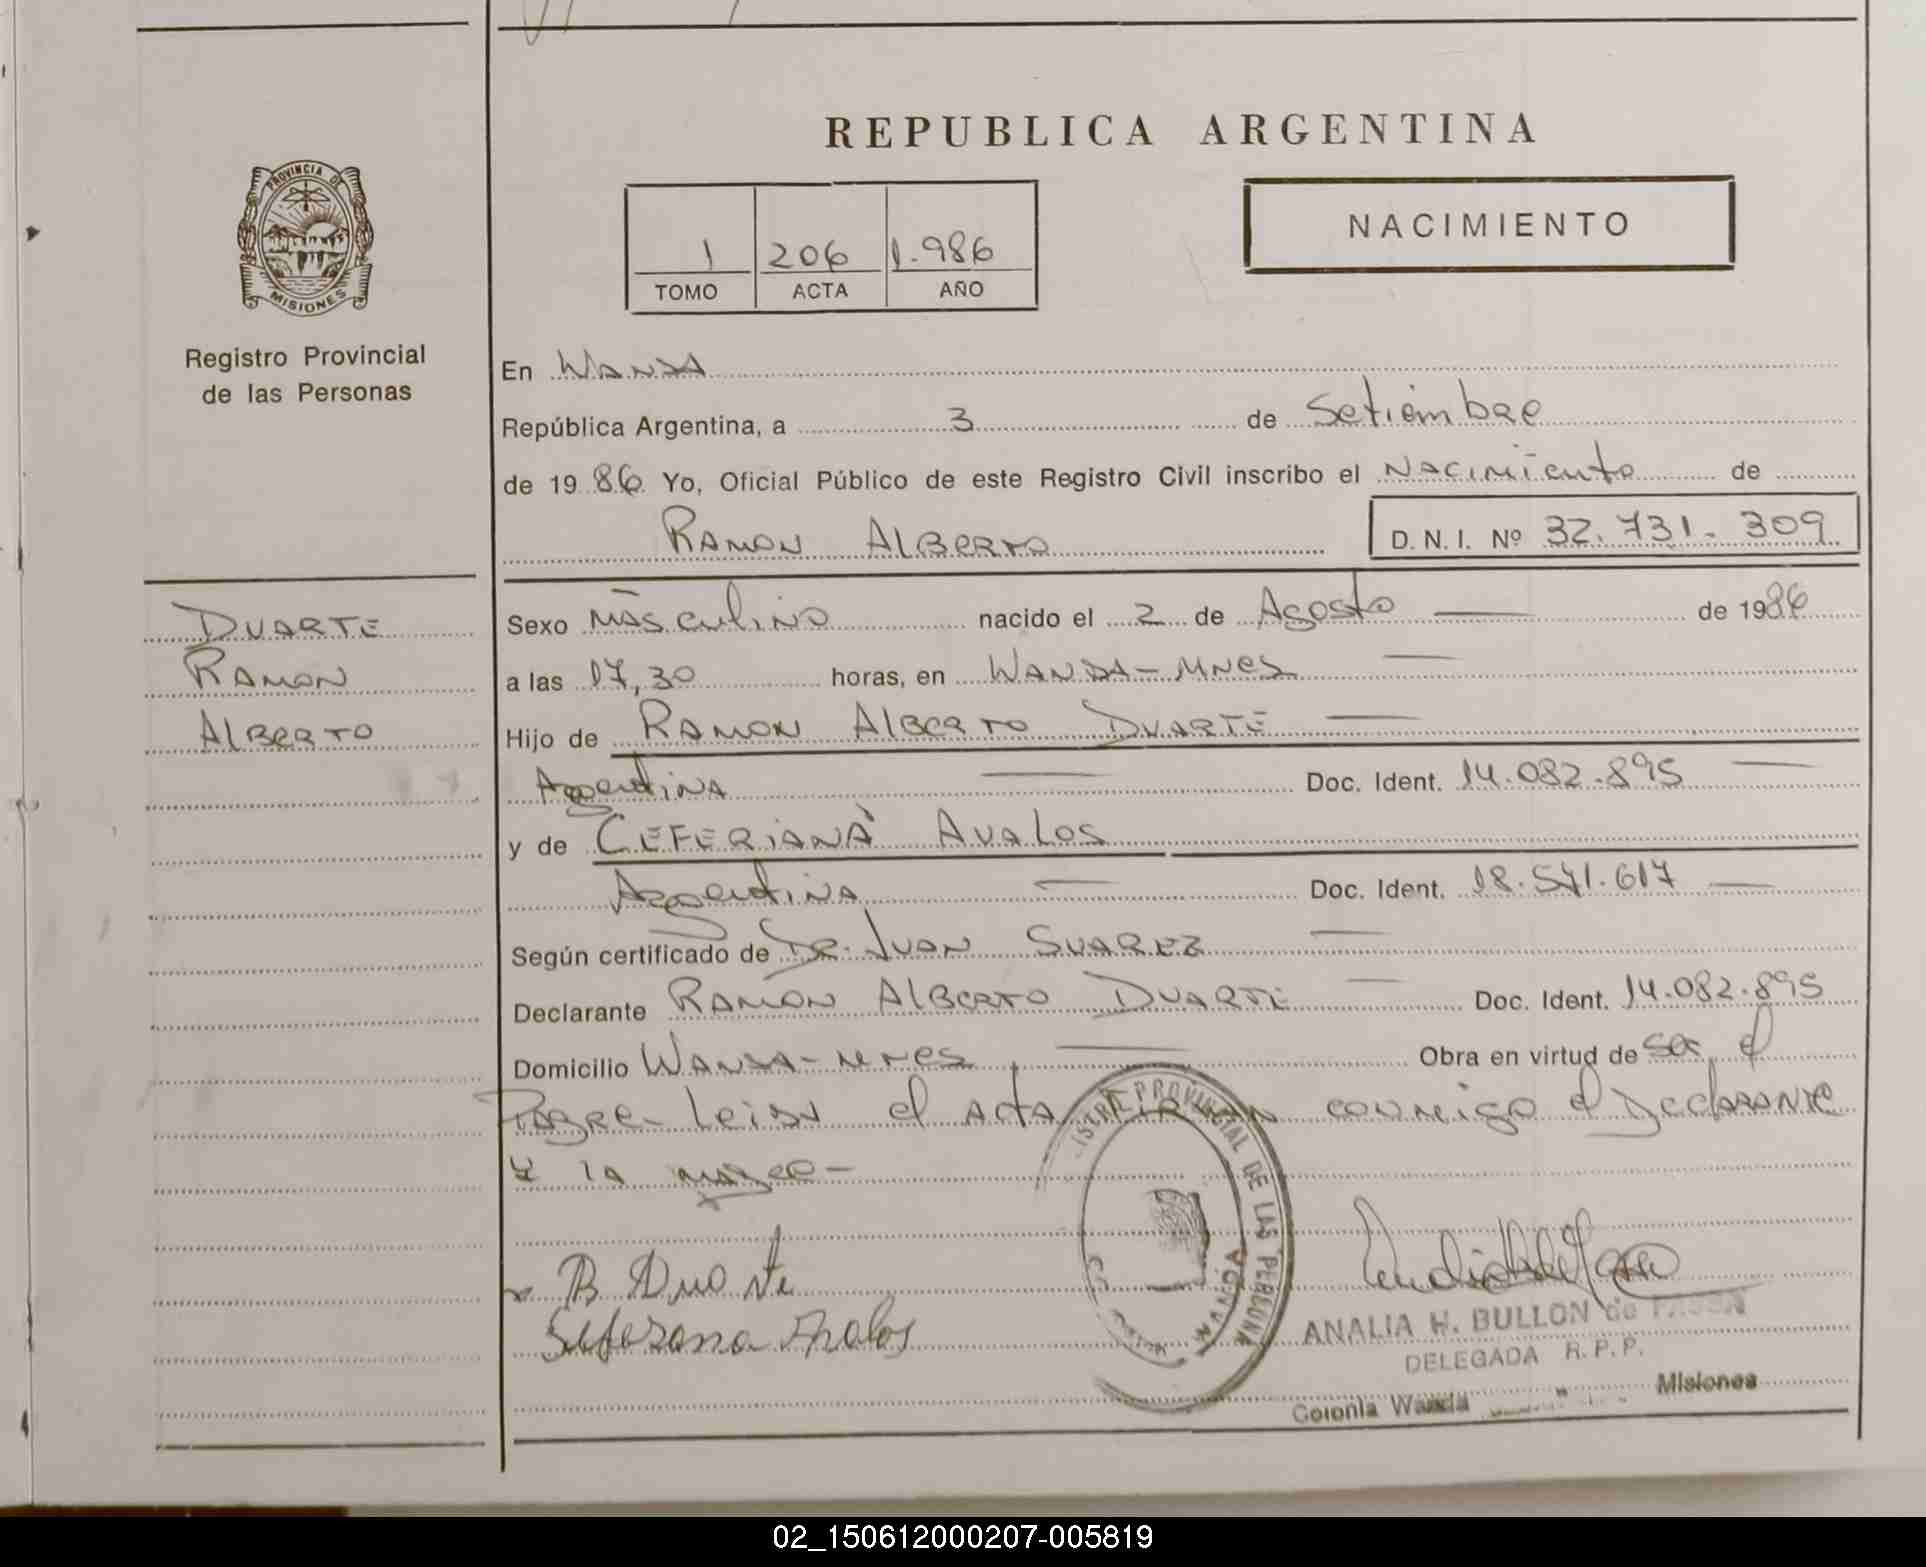 REPUBLICA ARGENTINA
PROVINCIA DE
MISIONES
Registro Provincial
de las Personas
1 206 1.986
TOMO ACTA AÑO
NACIMIENTO
En WANDA
República Argentina, a 3 de Setiembre
de 1986 Yo, Oficial Público de este Registro Civil inscribo el Nacimiento de
RAMON ALBERTO D. N. I. Nº 32.731.309
DUARTE
RAMON
ALBERTO
Sexo Masculino nacido el 2 de Agosto — de 1986
a las 17,30 horas, en WANDA-MNES —
Hijo de RAMON ALBERTO DUARTE —
Argentina — Doc. Ident. 14.082.895 —
y de CEFERIANA AVALOS
Argentina — Doc. Ident. 18.571.617 —
Según certificado de DR. JUAN SUAREZ —
Declarante RAMON ALBERTO DUARTE — Doc. Ident. 14.082.895
Domicilio WANDA-MNES — Obra en virtud de ser el
Padre- Leida el Acta FIRMAN conmigo el Declarante
y la madre-
REGISTRO PROVINCIAL DE LAS PERSONAS
WANDA
R Duarte
Seferiana Avalos
ANALIA H. BULLON de
DELEGADA R.P.P.
Colonia Wanda Misiones
02_150612000207-005819